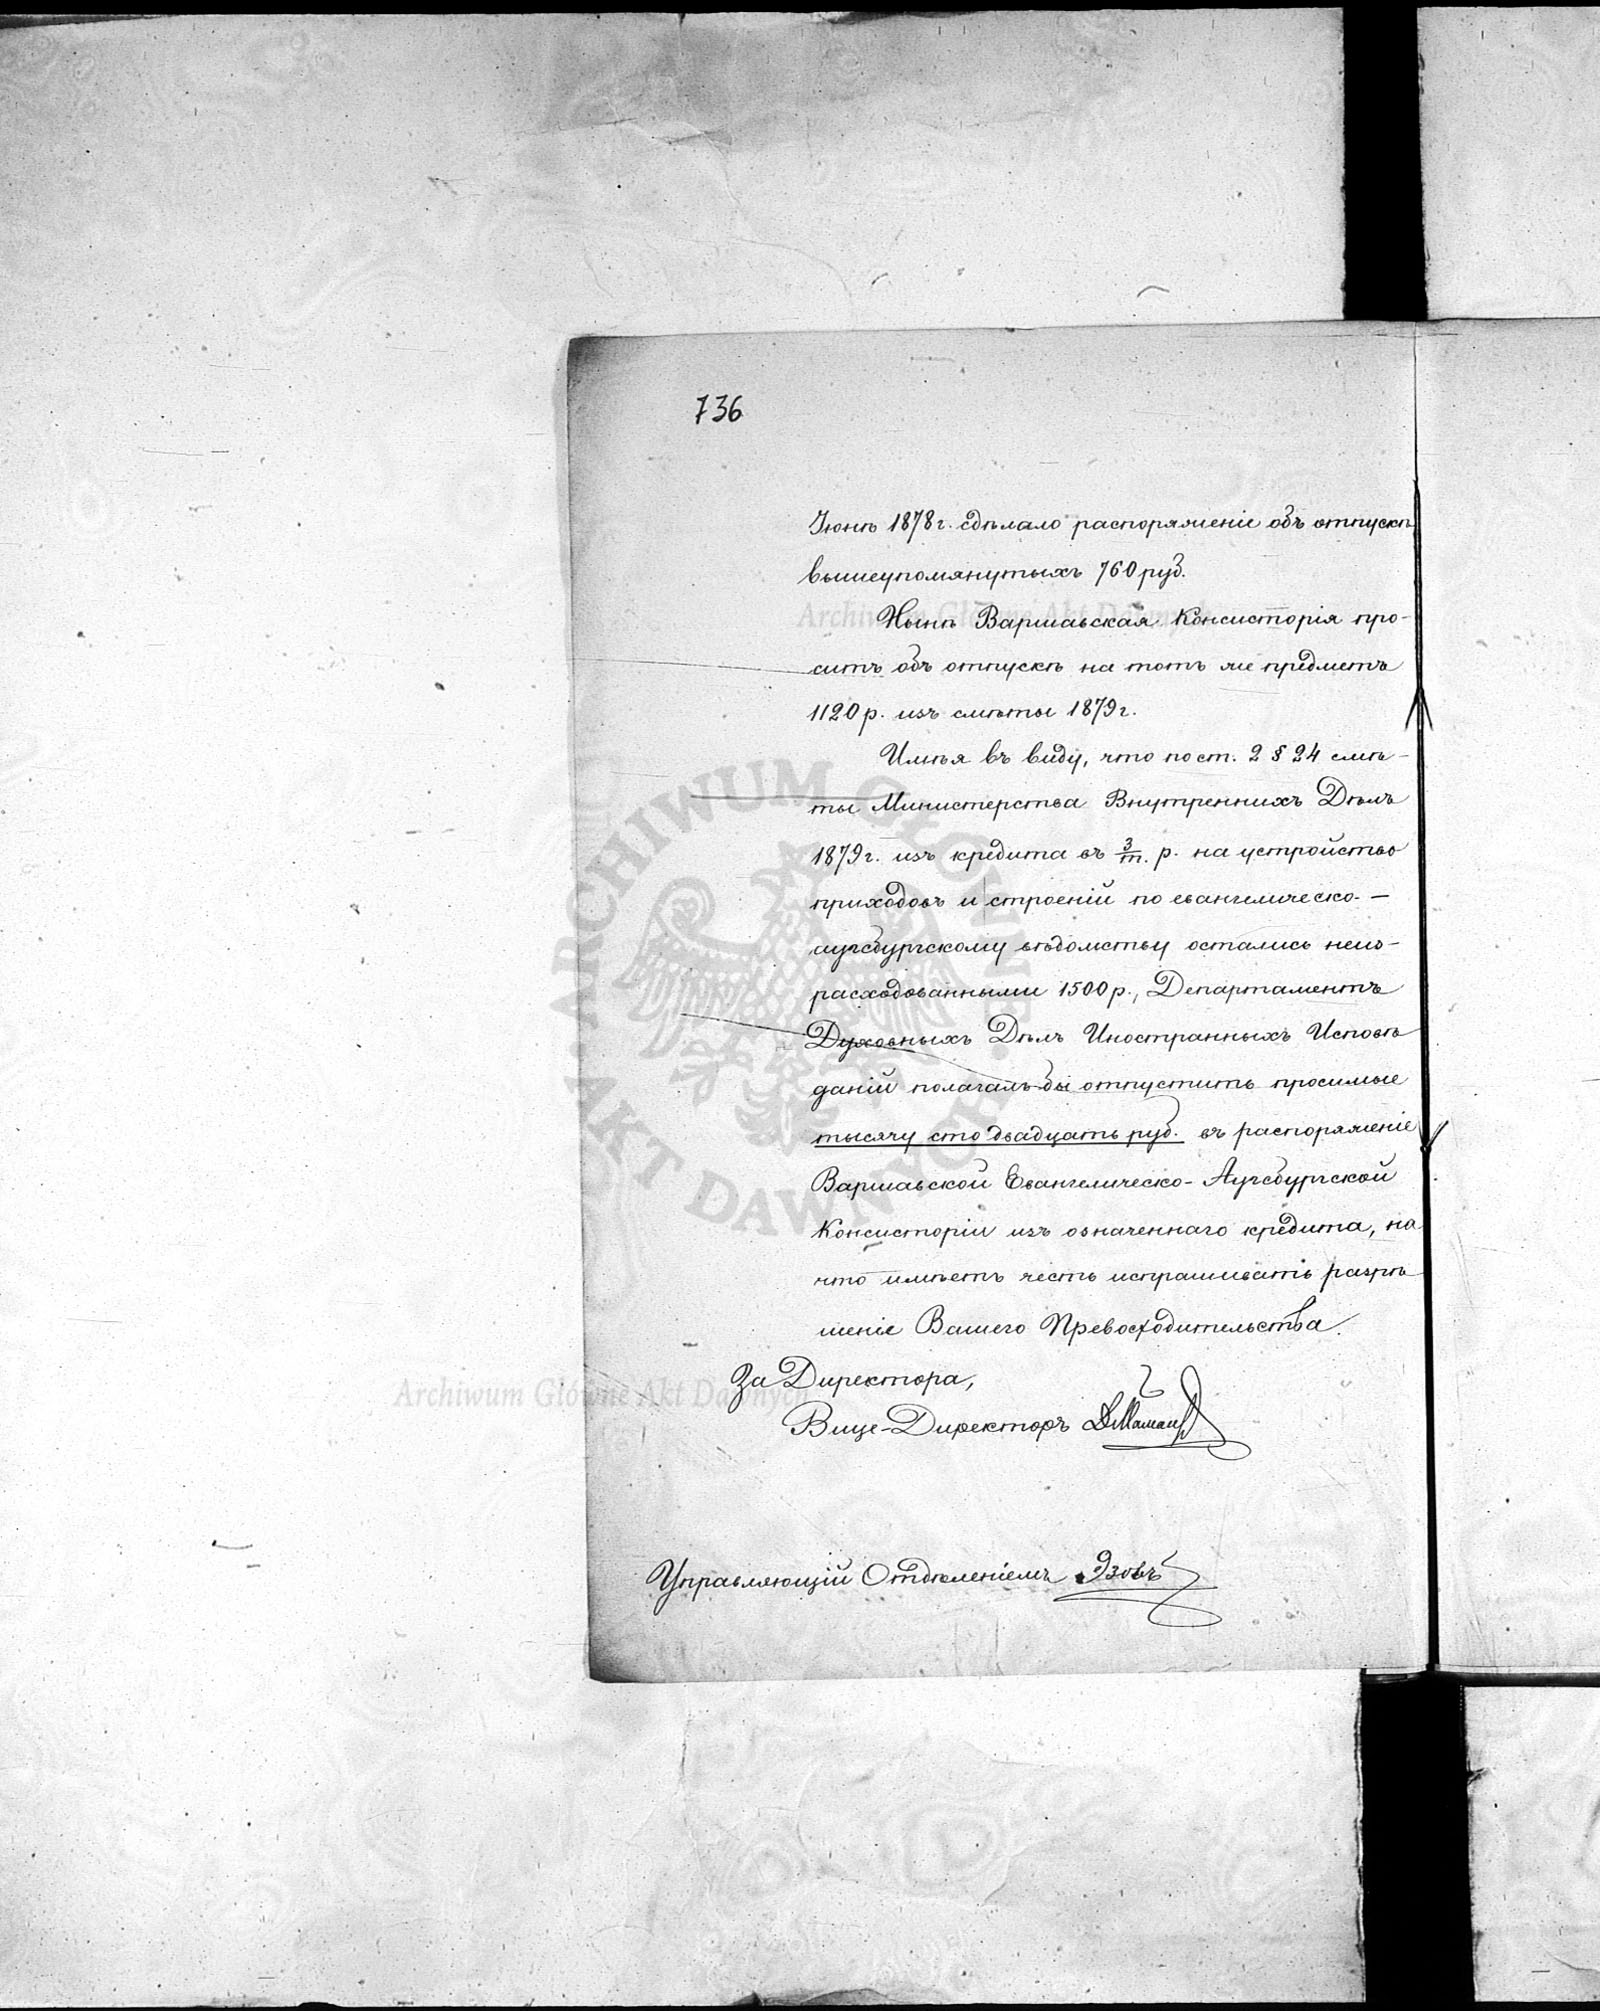 736
Іюнѣ 1878 г. сдѣлало распоряженіе объ отпускѣ
вышеупомянутыхъ 760 руб.
Нынѣ Варшавская Консисторія про-
ситъ объ отпускѣ на тотъ же предметъ
1120 р. изъ смѣты 1879 г.
Имѣя въ виду, что по ст. 2 § 24 смѣ-
ты Министерства Внутреннихъ Дѣлъ
1879 г. изъ кредита въ 3/т. р. на устройство
приходовъ и строеній по евангелическо-
аугсбургскому вѣдомству остались неиз-
расходованными 1500 р., Департаментъ
Духовныхъ Дѣлъ Иностранныхъ Исповѣ
даній полагалъ бы отпустить просимые
тысячу сто двадцать руб. въ распоряженіе
Варшавской Евангелическо-Аугсбургской
Консисторіи изъ означеннаго кредита, на
что имѣетъ честь испрашивать разрѣ
шеніе Вашего Превосходительства.
За Директора,
Вице-Директоръ
Управляющій Отдѣленіемъ Эзовъ
ARCHIWUM GŁÓWNE AKT DAWNYCH
Archiwum Główne Akt Dawnych
Archiwum Główne Akt Dawnych